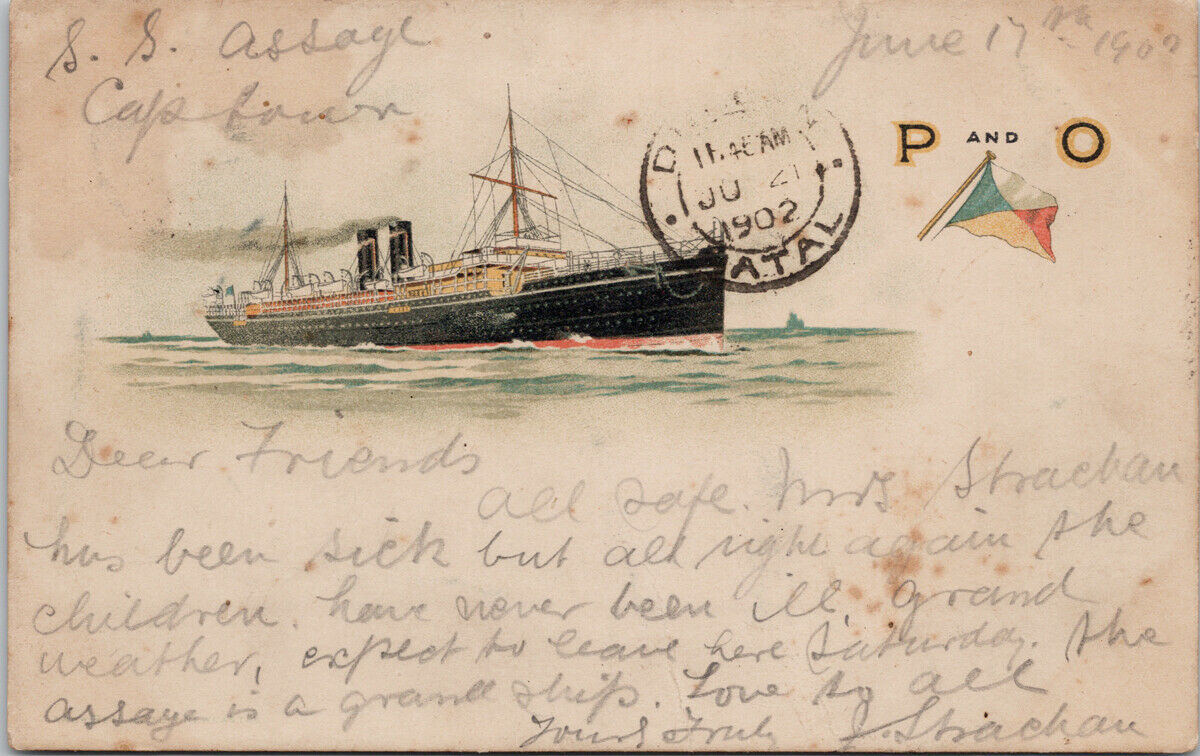 S. S. Assaye
Cap town
June 17th 1902
P AND O
11.45 AM
JU 21
1902
NATAL
Dear Friends
all safe. Mrs Strachan
has been sick but all right again the
children. have never been ill, grand
weather, expect to leave here Saturday. the
assaye is a grand ship. Love to all
Yours Truly J. Strachan